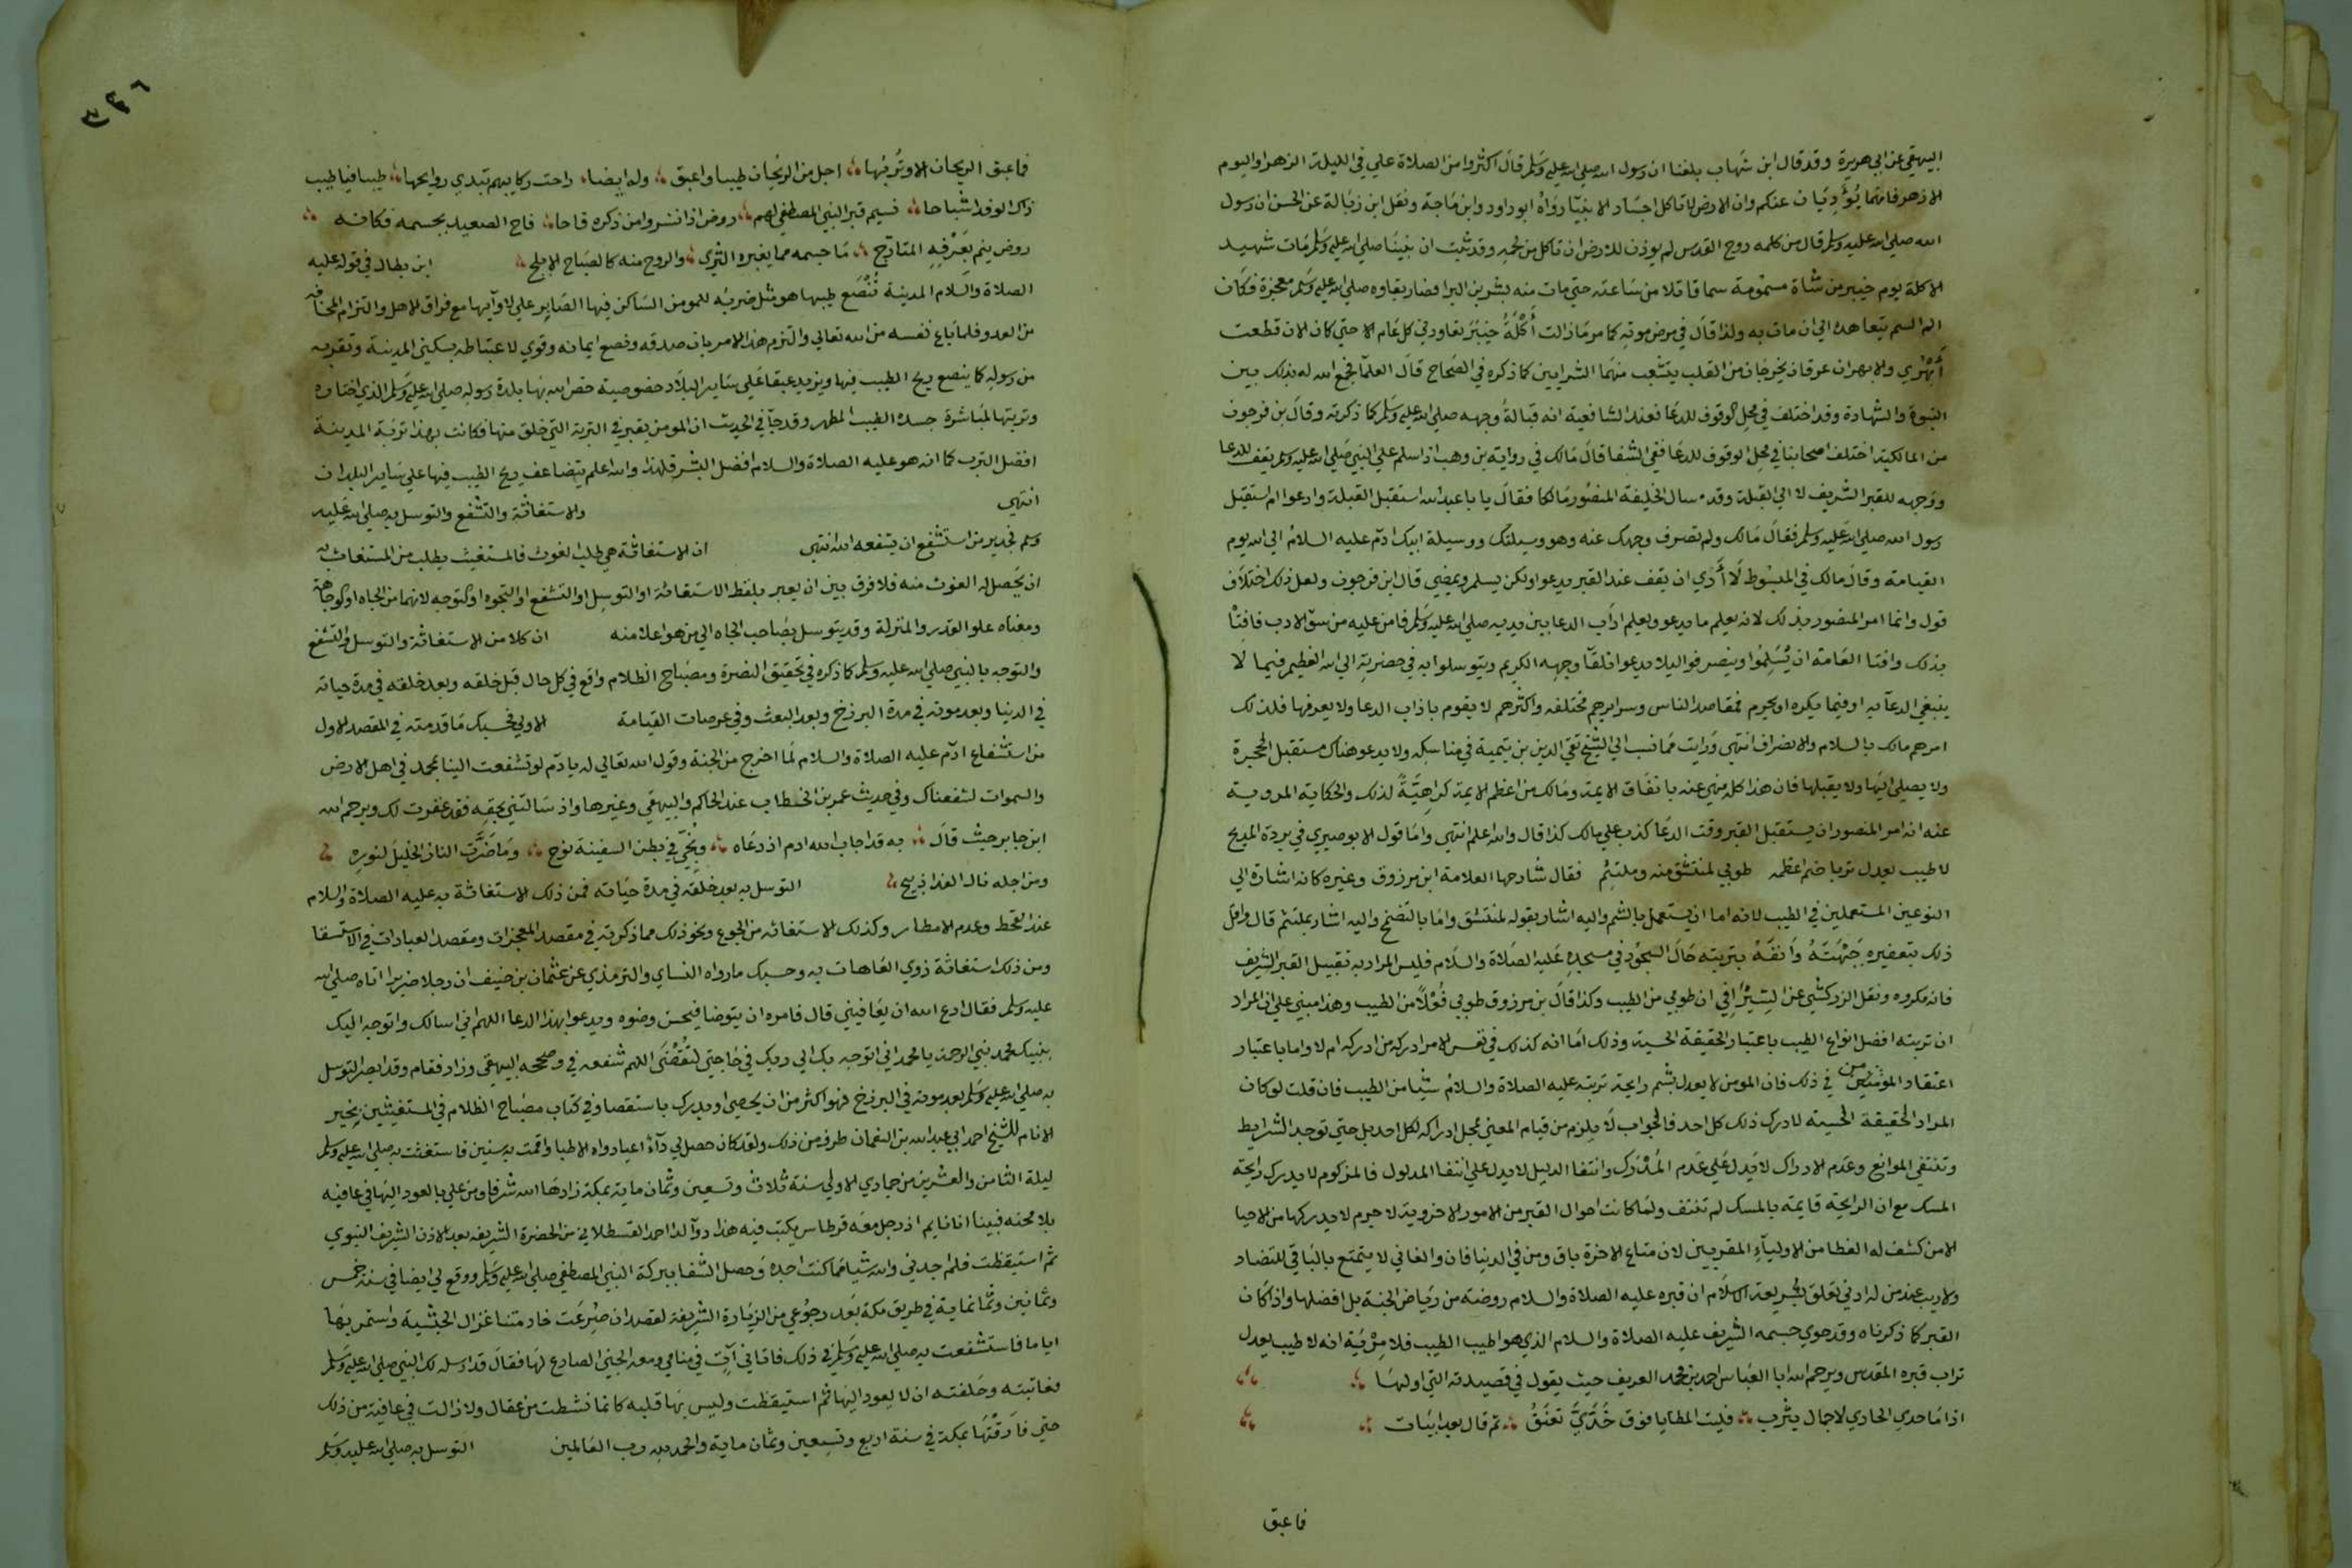 البيهقي عن ابي هريرة وقد قال ابن شهاب بلغنا ان رسول الله صلى الله عليه وسلم قال اكثروا من الصلاة علي في الليلة الزهرا واليوم
الازهر فانهما يُؤدِيَان عنكم وان الارض لا تاكل اجساد الانبيا رواه ابو داود وابن ماجة ونقل ابن زبالة عن الحسن ان رسول
الله صلى الله عليه وسلم قال من كلمه روح القدس لم يوذن للارض ان تاكل من لحمه وقد ثبت ان نبينا صلى الله عليه وسلم مات شهيد
الاكلة يوم خيبر من شاة مسمومة سما قاتلا من ساعته حتي مات منه بشر بن البرا فصار بقاوه صلى الله عليه وسلم معجزة فكان
الم السم يتعاهده الي ان مات به ولذا قال في مرض موته كما مر مازالت أُكْلَةُ خيبر تعاودني كل عام الا حتي كان الان قطعت
أَبْهَرِي والابهران عرقان يخرجان من القلب يتشعب منهما الشرايين كما ذكره في الصحاح قال العلما فجمع الله له بذلك بين
النبوة والشهادة وقد اختلف في محل الوقوف للدعا فعند الشافعية انه قبالة وجهه صلى الله عليه وسلم كما ذكرته وقال بن فرحون
من المالكية اختلف اصحابنا في محل الوقوف للدعا ففي الشفا قال مالك في رواية بن وهب اذا سلم علي النبي صلى الله عليه وسلم يقف للدعا
ووجهه للقبر الشريف لا الي القبلة وقد سال الخليفة المنصور مالكا فقال يا با عبد الله استقبل القبلة وادعوا ام استقبل
رسول الله صلى الله عليه وسلم فقال مالك ولم تصرف وجهك عنه وهو وسيلتك ووسيلة ابيك ادم عليه السلام الي الله يوم
القيامة وقال مالك في المبسوط لا أري ان يقف عند القبر يدعو ولكن يسلم ويمضي قال ابن فرحون ولعل ذلك اختلاف
قول وانما امر المنصور بذلك لانه يعلم ما يدعو ويعلم اداب الدعا بين يديه صلى الله عليه وسلم فامن عليه من سوّ الادب فافتا
بذلك وافتا العامة ان يُسَلِمُوا وينصرفوا ليلا يدعوا تلقآ وجهه الكريم ويتوسلوا به في حضرته الي الله العظيم فيما لا
ينبغي الدعآ به او فيما يكره او يحرم فمقاصد الناس وسرايرهم مختلفه واكثرهم لا يقوم باداب الدعا ولا يعرفها فلذلك
امرهم مالك بالسلام والانصراف انتهي ورايت مما نسب الي الشيخ تقي الدين بن تيمية في مناسكه ولا يدعو هناك مستقبل الحجرة
ولا يصلي اليها ولا يقبلها فان هذا كله منهي عنه باتفاق الايمة ومالك من اعظم الايمة كراهِيَةً لذلك والحكاية المروية
عنه انه امر المنصور ان يستقبل القبر وقت الدعا كذب علي مالك كذا قال والله اعلم انتهي واما قول الابوصيري في بردة المديح
لا طيب يعدل تربا ضم اعظمه طوبي لمنتشق منه وملتثم فقال شارحها العلامة ابن مرزوق وغيره كانه اشارة الي
النوعين المستعملين في الطيب لانه اما ان يستعمل بالشم واليه اشار بقوله لمنتشق واما بالتضمخ واليه اشار بملتثم قال واقل
ذلك بتعفير جَبْهَتَهُ وَانفَهُ بتربته حال السجود في مسجده عليه الصلاة والسلام فليس المراد به تقبيل القبر الشريف
فانه مكروه ونقل الزركشي عن السِيْرَافي ان طوبي من الطيب وكذا قال بن مرزوق طوبي فُعْلاً من الطيب وهذا مبني علي ان المراد
ان تربته افضل انواع الطيب باعتبار الحقيقة الحسية وذلك اما انه كذلك في نفس الامر ادركه من ادركه ام لا واما باعتبار
اعتقاد المؤمنين في ذلك فان المومن لا يعدل بشم رايحة تربته عليه الصلاة والسلام شيًا من الطيب فان قلت لو كان
المراد الحقيقة الحسية لادرك ذلك كل احد فالجواب لا يلزم من قيام المعني بمحل ادراكه لكل احد بل حتي توجد الشرايط
وتنتفي الموانع وعدم الادراك لا يدل علي عدم المُدْرَك وانتفا الدليل لا يدل علي انتفا المدلول فالمزكوم لا يدرك رايحة
المسك مع ان الرايحة قايمة بالمسك لم تنتف ولما كانت احوال القبر من الامور الاخروية لا جرم لا يدركها من الاحيا
الا من كشف له الغطا من الاوليآء المقربين لان متاع الاخرة باق ومن في الدنيا فان والفاني لا يتمتع بالباقي للتضاد
ولا ريب عند من له ادني تعلق بشريعة الاسلام ان قبره عليه الصلاة والسلام روضة من رياض الجنة بل افضلها واذا كان
القبر كما ذكرناه وقد حوي جسمه الشريف عليه الصلاة والسلام الذي هو اطيب الطيب فلا مِرْيَة انه لا طيب يعدل
تراب قبره المقدس ويرحم الله ابا العباس احمد بن محمد العريف حيث يقول في قصيدته التي اولها
اذا ما حدي الحادي لاجمال يثرب فليت المطايا فوق خَدِّيَّ تعنَقُ ثم قال بعد ابيات
فما عبق
فما عبق الريحان الا وتُربُها اجل من الريحان طيبا واعبق وله ايضا راحت ركايبهم تبدي روايحها طيبا فيا طيب
ذاك الوفد اشباحا نسيم قبر النبي المصطفي لهم روض اذا نشروا من ذكره فاحا فاح الصعيد بجسمه فكانه
روض ينم بعَرْفِهِ المتارّج ما جسمه مما يغيره الثري والروح منه كالصباح الابلج ابن بطال في قوله عليه
الصلاة والسلام المدينة تُنْصَع طيبها هو مثل ضربه للمومن الساكن فيها الصابر علي لاوآيها مع فراق الاهل والتزام المخافه
من العدو فلما باع نفسه من الله تعالي والتزم هذا الامر بان صدقه ونصع ايمانه وقوي لاغتباطه بسكني المدينة وتقربه
من رسوله كما ينصع ريح الطيب فيها ويزيد عبقا علي ساير البلاد خصوصية خص الله بها بلدة رسوله صلى الله عليه وسلم الذي اختاره
وتربتها لمباشرة جسده الطيب المطهر وقد جآ في الحديث ان المومن يقبر في التربة التي خلق منها فكانت بهذا تربة المدينة
افضل الترب كما انه هو عليه الصلاة والسلام افضل البشر فلهذا والله اعلم يتضاعف ريح الطيب فيها علي ساير البلدان
انتهي والاستغاثة والتشفع والتوسل به صلى الله عليه
وسلم فجدير من استشفع ان يشفعه الله انتهي ان الاستغاثة هي طلب الغوث فالمستغيث يطلب من المستغاث به
ان يحصل له الغوث منه فلا فرق بين ان يعبر بلفظ الاستغاثة او التوسل او التشفع او التجوه او التوجه لانهما من الجاه او الوجاهة
ومعناه علو القدر والمنزلة وقد يتوسل بصاحب الجاه الي من هو اعلا منه ان كلا من الاستغاثة والتوسل والتشفع
والتوجه بالنبي صلى الله عليه وسلم كما ذكره في تحقيق النصرة ومصباح الظلام واقع في كل حال قبل خلقه وبعد خلقه في مدة حياته
في الدنيا وبعد موته في مدة البرزخ وبعد البعث وفي عرصات القيامة الاولي فحسبك ما قدمته في المقصد الاول
من استشفاع ادم عليه الصلاة والسلام لما اخرج من الجنة وقول الله تعالي له يا ادم لو تشفعت الينا بمحمد في اهل الارض
والسموات لشفعناك وفي حديث عمر بن الخطاب عند الحاكم والبيهقي وغيرها واذ سالتني بحقه فقد غفرت لك ويرحم الله
ابن جابر حيث قال به قد اجاب الله ادم اذ دعاه ونُجّي في بطن السفينة نوح وما ضَرَّت النار الخليل لنوره
ومن اجله نال الفدا ذبيح التوسل به بعد خلقه في مدة حياته فمن ذلك الاستغاثة به عليه الصلاة والسلام
عند القحط وعدم الامطار وكذلك الاستغاثه من الجوع ونحو ذلك مما ذكرته في مقصد المعجزات ومقصد العبادات في الاستسقا
ومن ذلك استغاثة ذوي العاهات به وحسبك ما رواه النساي والترمذي عن عثمان بن حنيف ان رجلا ضريرا اتاه صلى الله
عليه وسلم فقال ادع الله ان يعافيني قال فامره ان يتوضا فيحسن وضوه ويدعو بهذا الدعا اللهم اني اسالك واتوجه اليك
بنبيك محمد نبي الرحمة يا محمد اني اتوجه بك الي ربك في حاجتي لتُقْضَي اللهم شفعه في وصححه البيهقي وزاد فقام وقد ابصر التوسل
به صلى الله عليه وسلم بعد موته في البرزخ فهو اكثر من ان يحصي او يدرك باستقصا وفي كتاب مصباح الظلام في المستغيثين بخير
الانام للشيخ احمد ابي عبد الله بن النعمان طرف من ذلك ولقد كان حصل لي دآء اعيا دواه الاطبا واقمت به سنين فاستغثت به صلى الله عليه وسلم
ليلة الثامن والعشرين من جمادي الاولي سنة ثلاث وتسعين وثمان ماية بمكة زادها الله شرفا ومن علي بالعود اليها في عافيه
بلا محنه فبينا انا نايم اذ رجل معه قرطاس يكتب فيه هذا دوآ لداء احمد القسطلاني من الحضرة الشريفه بعد الاذن الشريف النبوي
ثم استيقظت فلم اجد بي والله شيا مما كنت اجده وحصل الشفا ببركة النبي المصطفي صلى الله عليه وسلم ووقع لي ايضا في سنة خمس
وثمانين وثمانماية في طريق مكة بعد رجوعي من الزيارة الشريفة لقصد ان صُرِعَت خادمتنا غزال الحبشية واستمر بها
اياما فاستشفعت به صلى الله عليه وسلم في ذلك فاتاني آتٍ في منامي ومعه الجني الصارع لها فقال قد ارسله لك النبي صلى الله عليه وسلم
فعاتبته وحلفته ان لا يعود اليها ثم استيقظت وليس بها قلبه كانما نشطت من عقال ولا زالت في عافية من ذلك
حتي فارقتها بمكة في سنة اربع وتسعين وثمان ماية والحمد لله رب العالمين التوسل به صلى الله عليه وسلم